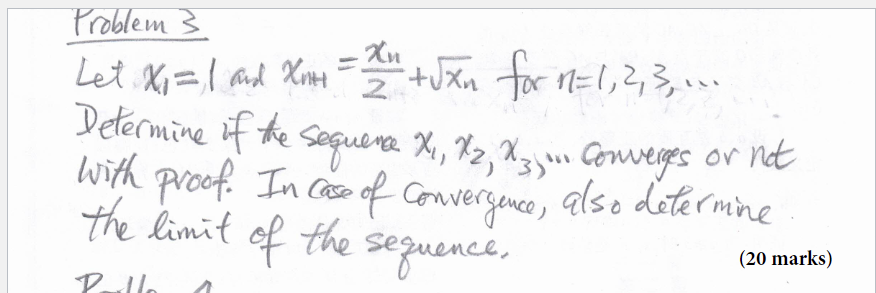 Problem 3
Let x₁=1 and xₙ₊₁ = xₙ/2 + √xₙ for n=1,2,3,...
Determine if the sequence x₁, x₂, x₃,... Converges or not
with proof. In case of Convergence, also determine
the limit of the sequence.
(20 marks)